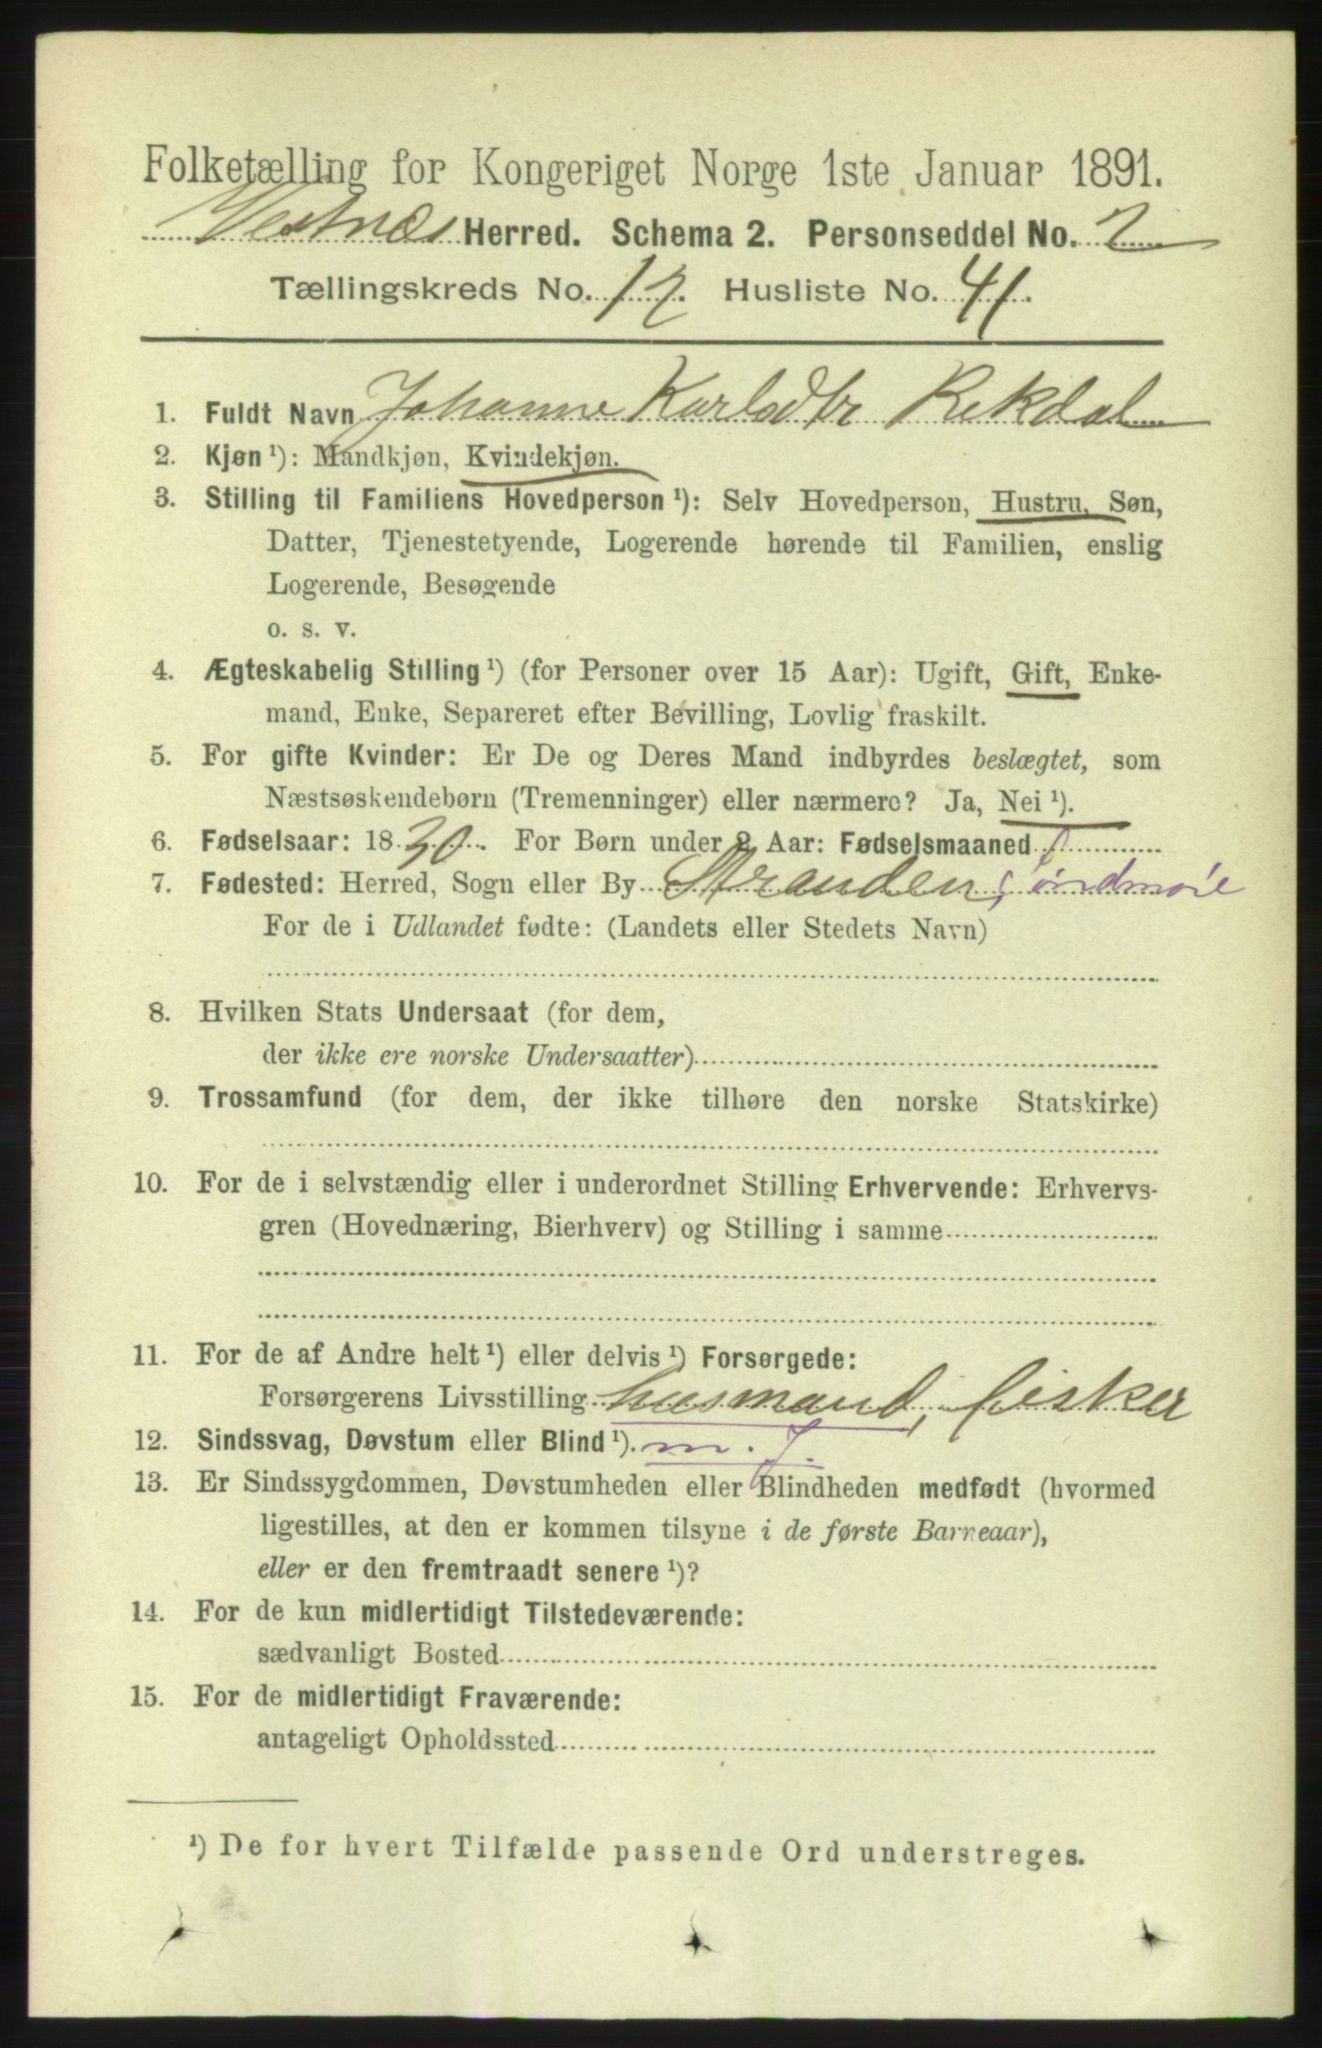 Folketælling for Kongeriget Norge 1ste Januar 1891.
Vestnæs Herred. Schema 2. Personseddel No. 2
Tællingskreds No. 12. Husliste No. 41.
1. Fuldt Navn Johanne Karlsdtr Rekdal
2. Kjøn ¹): Mandkjøn, Kvindekjøn.
3. Stilling til Familiens Hovedperson ¹): Selv Hovedperson, Hustru, Søn,
Datter, Tjenestetyende, Logerende hørende til Familien, enslig
Logerende, Besøgende
o. s. v.
4. Ægteskabelig Stilling ¹) (for Personer over 15 Aar): Ugift, Gift, Enke-
mand, Enke, Separeret efter Bevilling, Lovlig fraskilt.
5. For gifte Kvinder: Er De og Deres Mand indbyrdes beslægtet, som
Næstsøskendebørn (Tremenninger) eller nærmere? Ja, Nei ¹).
6. Fødselsaar: 1830. For Børn under 2 Aar: Fødselsmaaned
7. Fødested: Herred, Sogn eller By Stranden, Søndmøre
For de i Udlandet fødte: (Landets eller Stedets Navn)
8. Hvilken Stats Undersaat (for dem,
der ikke ere norske Undersaatter)
9. Trossamfund (for dem, der ikke tilhøre den norske Statskirke)
10. For de i selvstændig eller i underordnet Stilling Erhvervende: Erhvervs-
gren (Hovednæring, Bierhverv) og Stilling i samme
11. For de af Andre helt ¹) eller delvis ¹) Forsørgede:
Forsørgerens Livsstilling husmand, fisker
12. Sindssvag, Døvstum eller Blind ¹). m. J.
13. Er Sindssygdommen, Døvstumheden eller Blindheden medfødt (hvormed
ligestilles, at den er kommen tilsyne i de første Barneaar),
eller er den fremtraadt senere ¹)?
14. For de kun midlertidigt Tilstedeværende:
sædvanligt Bosted
15. For de midlertidigt Fraværende:
antageligt Opholdssted
¹) De for hvert Tilfælde passende Ord understreges.